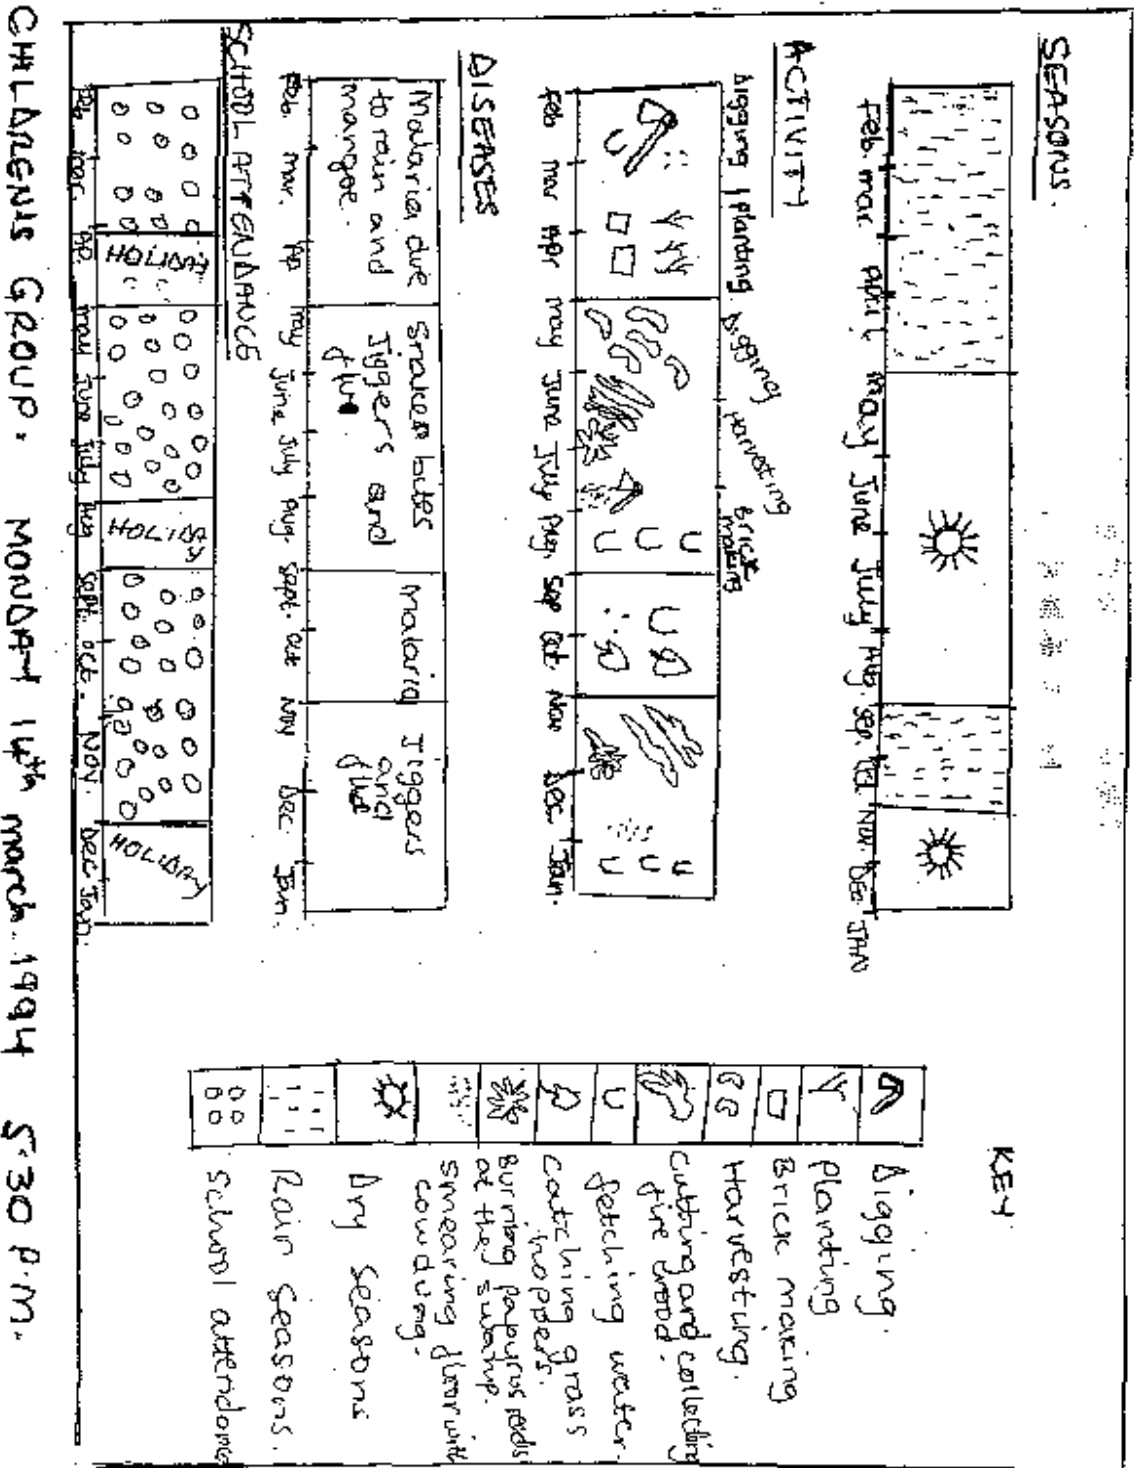 SEASONS.
Feb. mar April May June July Aug. sep. oct Nov DEC JAN
ACTIVITY
Digging / planting Digging Harvesting Brick making
Feb mar Apr may June July Aug. Sep Oct. Nov Dec Jan.
DISEASES
Malaria due
to rain and
mangoe.
Snake bites
Jiggers and
flu.
Malaria
Jiggers
and
flu
Feb. mar. Ap may June July Aug. Sept. oct Nov Dec. Jan.
SCHOOL ATTENDANCE
HOLIDAY HOLIDAY HOLIDAY
Feb. mar. Ap. may June July Aug Sept. oct. Nov. Dec Jan.
KEY
Digging.
Planting
Brick making
Harvesting.
Cutting and collecting
fire wood.
fetching water.
catching grass
hoppers.
Burning Papyrus reeds
at the swamp.
Smearing floor with
cow dung.
Dry Seasons
Rain Seasons.
School attendance
CHILDRENS GROUP. MONDAY 14th march. 1994 5.30 P.M.